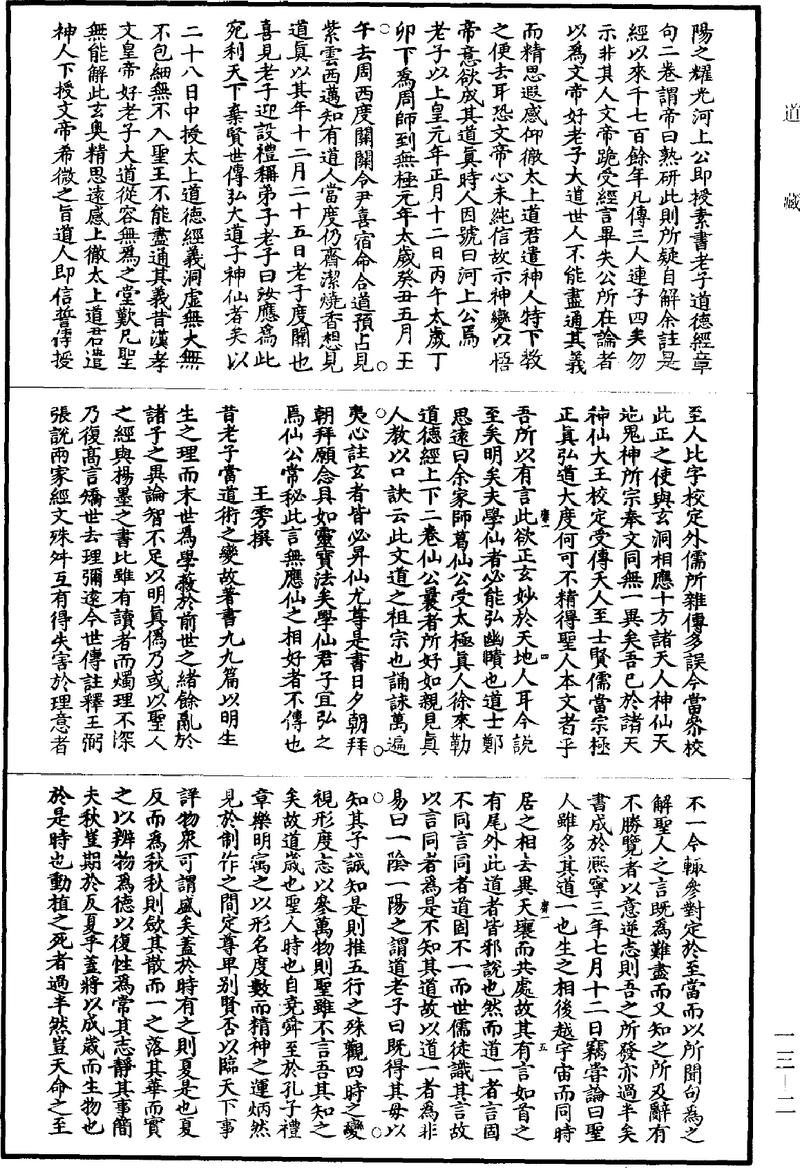 道藏
陽之耀光河上公即授素書老子道德經章
句二卷謂帝曰熟研此則所疑自解余註是
經以來千七百餘年凡傳三人連子四矣勿
示非其人文帝跪受經言畢失公所在論者
以為文帝好老子大道世人不能盡通其義
而精思遐感仰徹太上道君遣神人特下教
之便去耳恐文帝心未純信故示神變以悟
帝意欲成其道真時人因號曰河上公焉
老子以上皇元年正月十二日丙午太歲丁
卯下為周師到無極元年太歲癸丑五月壬
午去周西度關關令尹喜宿命合道預占見
紫雲西邁知有道人當度仍齋潔燒香想見
道真以其年十二月二十五日老子度關也
喜見老子迎設禮稱弟子老子曰汝應為此
宛利天下棄賢世傳弘大道子神仙者矣以
二十八日中授太上道德經義洞虛無大無
不包細無不入聖王不能盡通其義昔漢孝
文皇帝好老子大道從容無為之堂歎凡聖
無能解此玄奧精思遠感上徹太上道君遣
神人下授文帝希微之旨道人即信誓傳授
至人比字校定外儒所雜傳多誤今當參校
此正之使與玄洞相應十方諸天人神仙天
地鬼神所宗奉文同無一異矣吾已於諸天
神仙大王校定受傳天人至士賢儒當宗極
正真弘道大度何可不精得聖人本文者乎
吾所以有言此欲正玄妙於天地人耳今說
至矣明矣夫學仙者必能弘幽賾也道士鄭
思遠曰余家師葛仙公受太極真人徐來勒
道德經上下二卷仙公曩者所好如親見真
人教以口訣云此文道之祖宗也誦詠萬遍
夷心註玄者皆必昇仙尤尊是書日夕朝拜
朝拜願念具如靈寶法矣學仙君子宜弘之
焉仙公常秘此言無應仙之相好者不傳也
王雱撰
昔老子當道術之變故著書九九篇以明生
生之理而末世為學蔽於前世之緒餘亂於
諸子之異論智不足以明真偽乃或以聖人
之經與楊墨之書比雖有讀者而燭理不深
乃復高言矯世去理彌遠今世傳註釋王弼
張說兩家經文殊舛互有得失害於理意者
不一今輒參對定於至當而以所聞句為之
解聖人之言既為難盡而又知之所及辭有
不勝覽者以意逆志則吾之所發亦過半矣
書成於熙寧三年七月十二日竊嘗論曰聖
人雖多其道一也生之相後越宇宙而同時
居之相去異天壤而共處故其有言如首之
有尾外此道者皆邪說也然而道一者言固
不同言同者道固不一而世儒徒識其言故
以言同者為是不知其道故以道一者為非
易曰一陰一陽之謂道老子曰既得其母以
知其子誠知是則推五行之殊觀四時之變
視形度志以參萬物則聖雖不言吾其知之
矣故道歲也聖人時也自堯舜至於孔子禮
章樂明寓之以形名度數而精神之運炳然
見於制作之間定尊卑別賢否以臨天下事
詳物衆可謂盛矣蓋於時有之則夏是也夏
反而為秋秋則斂其散而一之落其華而實
之以辨物為德以復性為常其志靜其事簡
夫秋豈期於反夏乎蓋將以成歲而生物也
於是時也動植之死者過半然豈天命之至
一三—二